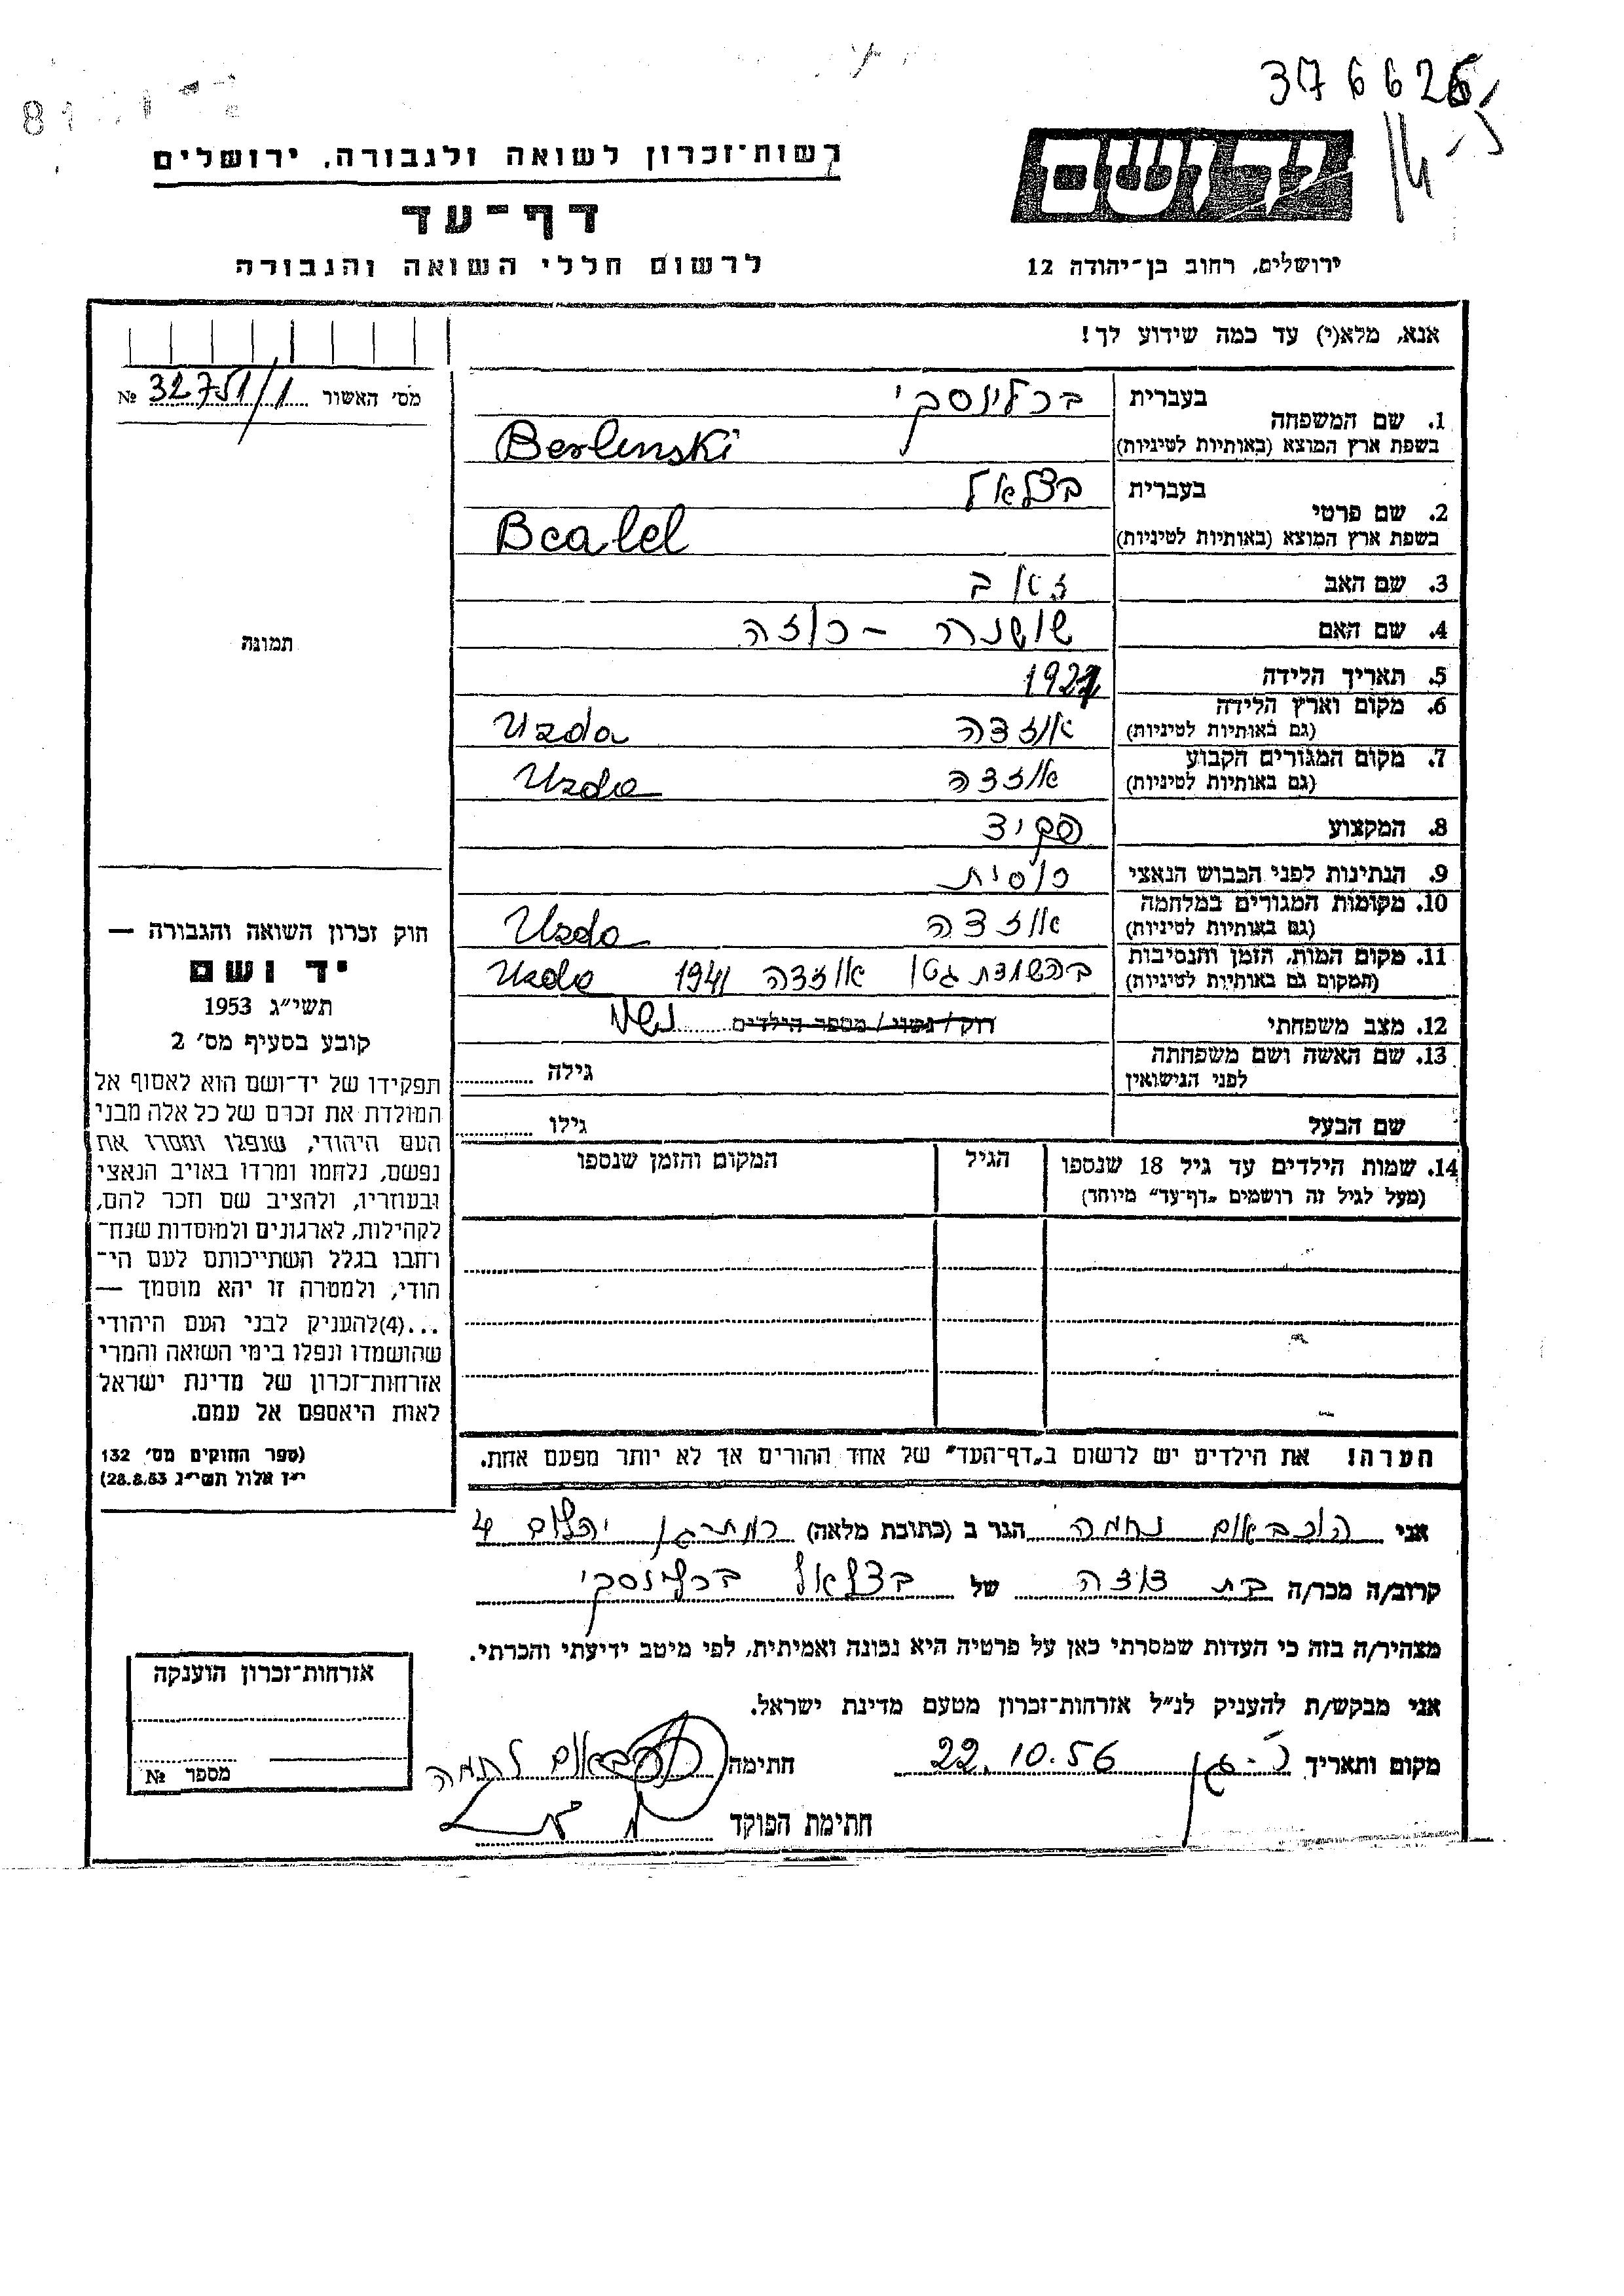 376626
רשות־זכרון לשואה ולגבורה, ירושלים
דף־עד
לרשום חללי השואה והגבורה
ידושם
ירושלים, רחוב בן־יהודה 12
אנא, מלא(י) עד כמה שידוע לך!
מס׳ האשור 32751/1 №
תמונה
1. שם המשפחה בעברית ברלינסקי
בשפת ארץ המוצא (באותיות לטיניות) Berlinski
2. שם פרטי בעברית בצלאל
בשפת ארץ המוצא (באותיות לטיניות) Bcalel
3. שם האב זאב
4. שם האם שושנה - רוזה
5. תאריך הלידה
6. מקום וארץ הלידה (גם באותיות לטיניות) אוזדה Uzda
7. מקום המגורים הקבוע (גם באותיות לטיניות) אוזדה Uzda
8. המקצוע פקיד
9. הנתינות לפני הכבוש הנאצי רוסית
10. מקומות המגורים במלחמה (גם באותיות לטיניות) אוזדה Uzda
11. מקום המות, הזמן והנסיבות (המקום גם באותיות לטיניות) בהשמדת גטו אוזדה 1941 Uzda
12. מצב משפחתי רוק / נשוי / מספר הילדים נשוי
13. שם האשה ושם משפחתה לפני הנישואין גילה
שם הבעל גילו
14. שמות הילדים עד גיל 18 שנספו (מעל לגיל זה רושמים „דף־עד״ מיוחד) הגיל המקום והזמן שנספו
חוק זכרון השואה והגבורה —
יד ושם
תשי״ג 1953
קובע בסעיף מס׳ 2
תפקידו של יד־ושם הוא לאסוף אל
המולדת את זכרם של כל אלה מבני
העם היהודי, שנפלו ומסרו את
נפשם, נלחמו ומרדו באויב הנאצי
ובעוזריו, ולהציב שם וזכר להם,
לקהילות, לארגונים ולמוסדות שנח־
רחבו בגלל השתייכותם לעם הי־
הודי, ולמטרה זו יהא מוסמך —
...(4)להעניק לבני העם היהודי
שהושמדו ונפלו בימי השואה והמרי
אזרחות־זכרון של מדינת ישראל
לאות היאספם אל עמם.
(ספר החוקים מס׳ 132
י״ז אלול תשי״ג 28.8.53)
הערה! את הילדים יש לרשום ב„דף־העד״ של אחד ההורים אך לא יותר מפעם אחת.
אני הירבאום נחמה הגר ב (כתובת מלאה) רמת-גן יהלום 4
קרוב/ה מכר/ה בת דודה של בצלאל ברלינסקי
מצהיר/ה בזה כי העדות שמסרתי כאן על פרטיה היא נכונה ואמיתית, לפי מיטב ידיעתי והכרתי.
אני מבקש/ת להעניק לנ״ל אזרחות־זכרון מטעם מדינת ישראל.
מקום ותאריך ר-גן 22.10.56 חתימה
חתימת הפוקד
אזרחות־זכרון הוענקה
מספר №